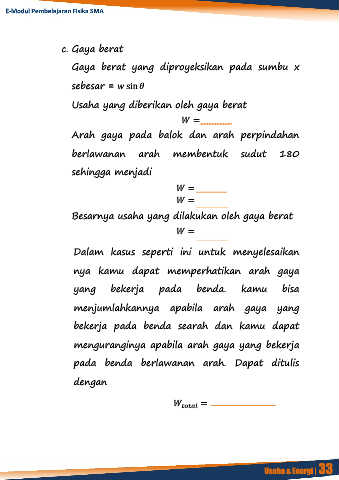 E-Modul Pembelajaran Fisika SMA
c. Gaya berat
Gaya berat yang diproyeksikan pada sumbu x
sebesar = w sin θ
Usaha yang diberikan oleh gaya berat
W =..............
Arah gaya pada balok dan arah perpindahan
berlawanan arah membentuk sudut 180
sehingga menjadi
W =
W =
Besarnya usaha yang dilakukan oleh gaya berat
W =
Dalam kasus seperti ini untuk menyelesaikan
nya kamu dapat memperhatikan arah gaya
yang bekerja pada benda. kamu bisa
menjumlahkannya apabila arah gaya yang
bekerja pada benda searah dan kamu dapat
menguranginya apabila arah gaya yang bekerja
pada benda berlawanan arah. Dapat ditulis
dengan
W total =
Usaha & Energi | 33